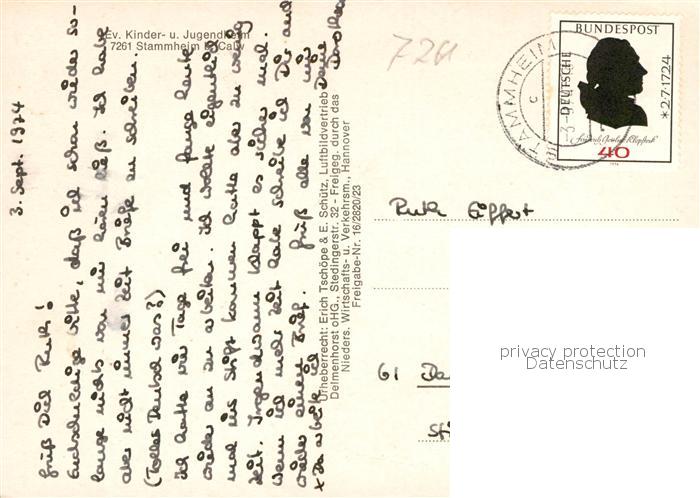 Ev. Kinder- u. Jugendheim
7261 Stammheim b. Calw
3. Sept. 1974
Grüß Dich Ruth!
Entschuldige bitte, daß ich schon wieder so-
lange nichts von mir hören ließ. Ich habe
aber nicht immer Zeit Briefe zu schreiben.
(Tolles Deutsch was?)
Ich hatte Tage frei und fange heute
wieder an zu arbeiten. Ich wollte eigentlich
mal ins Stift kommen hatte aber zu wenig
Zeit. Irgendwann klappt es sicher mal.
Wenn ich mehr Zeit habe schreibe ich Dir auch
wieder einen Brief. Grüß alle von mir
Deine
x Da arbeite ich
Urheberrecht: Erich Tschöpe & E. Schütz, Luftbildvertrieb
Delmenhorst oHG., Stedingerstr. 32 - Freigeg. durch das
Nieders. Wirtschafts- u. Verkehrsm., Hannover
Freigabe-Nr. 16/2820/23
7261
STAMMHEIM
c
DEUTSCHE BUNDESPOST
* 2·7·1724
Friedrich Gottlieb Klopstock
40
Ruth Eiffert
61 Da
Sti
privacy protection
Datenschutz